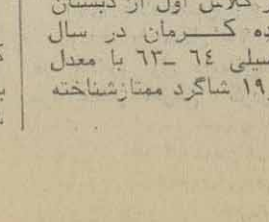 کلاس اول از دبستان
ده کــرمان در سال
سیلی ٦٤ ـ ٦٣ با معدل
۱۹ شاگرد ممتازشناخته